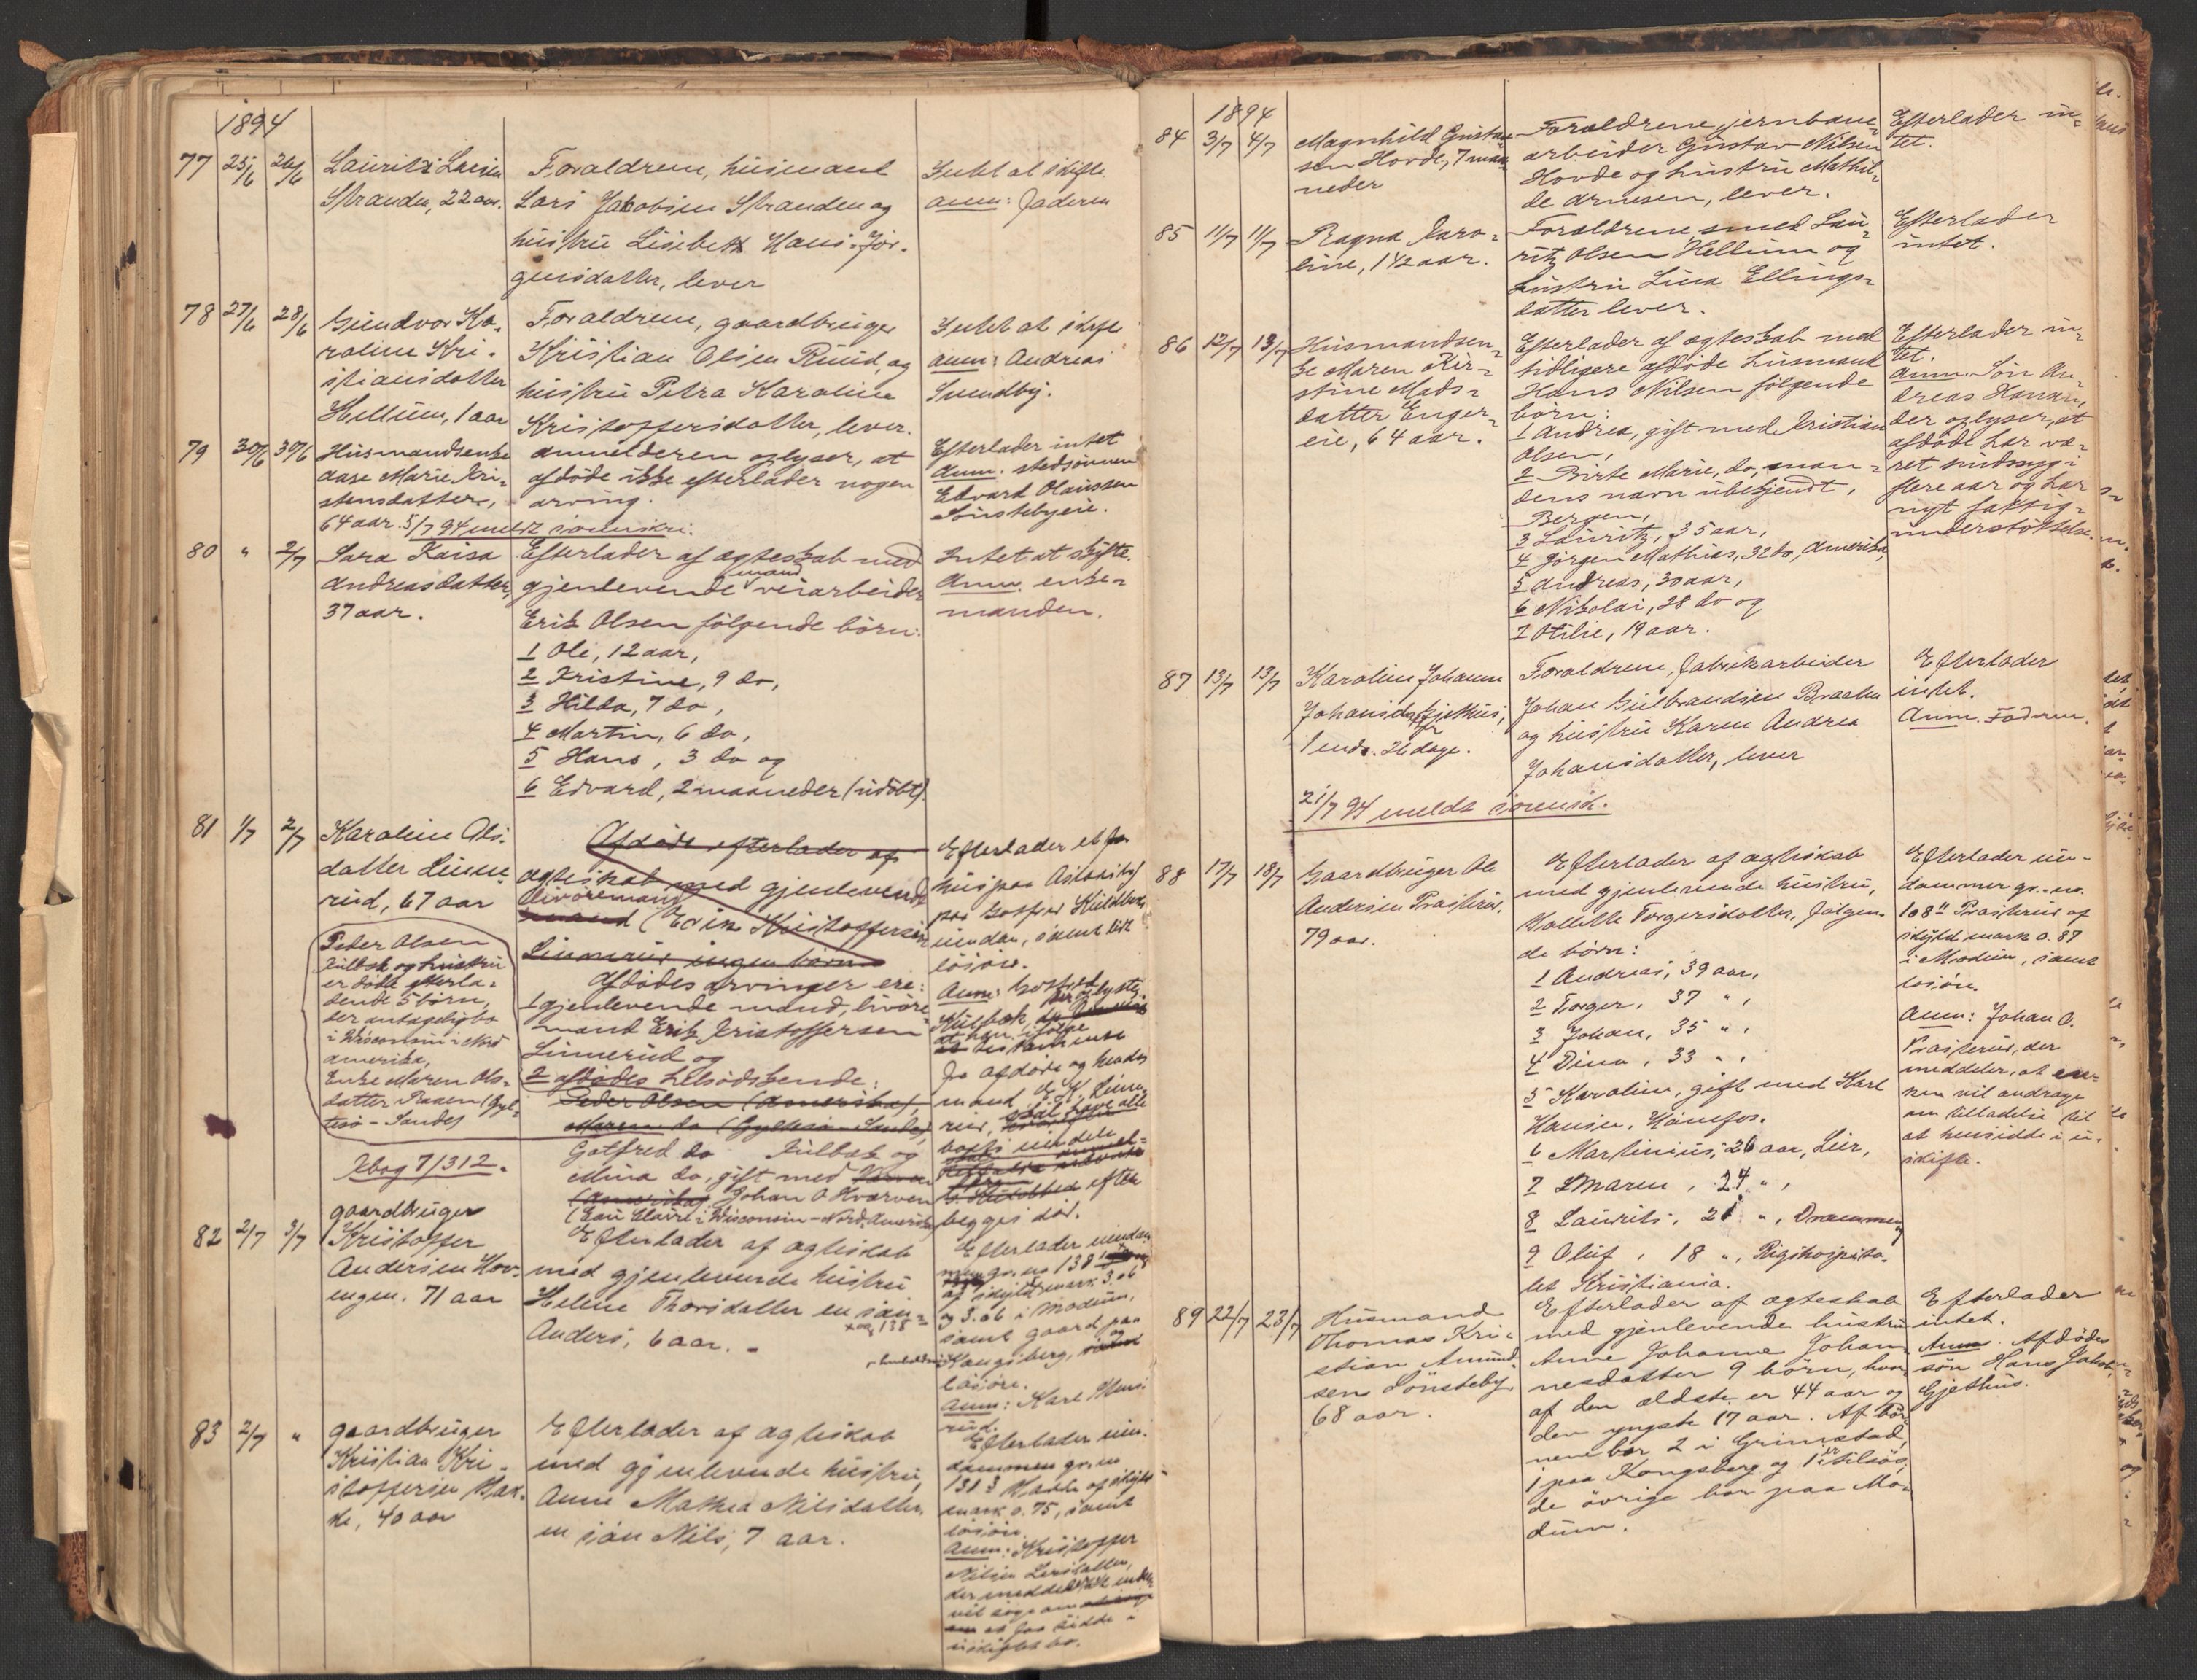 1894
77 25/6 26/6 Lauritz Larsen
Stranden, 22 aar.
Forældrene, husmand
Lars Jakobsen Stranden og
hustru Lisebeth Hans Jør-
gensdatter, lever
Intet at skifte.
Anm: Faderen
78 27/6 28/6 Gundvor Ka-
roline Kri-
stiansdatter
Hellum, 1 aar
Forældrene, gaardbruger
Kristian Olsen Ruud, og
hustru Petra Karoline
Kristoffersdatter, lever.
Intet at skifte
Anm: Andreas
Sundby.
79 30/6 30/6 Husmandsenke
Aase Marie Kri-
stensdatter,
64 aar. 5/7 94 meldt sorenskr.
Anmelderen oplyser, at
afdøde ikke efterlader nogen
arving.
Efterlader intet
Anm. stedsønnen
Edvard Olaussen
Sønstebyeie.
80 " 2/7 Sara Kaisa
Andreasdatter,
37 aar.
Efterlader af ægteskab med
gjenlevende mand veiarbeider
Erik Olsen følgende børn:
1 Ole, 12 aar,
2 Kristine, 9 do,
3 Hilda, 7 do,
4 Martin, 6 do,
5 Hans, 3 do og
6 Edvard, 2 maaneder (udøbt).
Intet at skifte.
Anm. enke-
manden.
81 1/7 2/7 Karoline Ols-
datter Linne-
rud, 67 aar
Peder Olsen
Kulbæk og hustru
er døde efterla-
dende 5 børn,
der antagelig bo
i Wisconsin i Nord
amerika,
Enke Maren Ols-
datter Paaen (Gyl-
tesø - Sande)
Kbog 7/312.
Afdøde efterlader af
ægteskab med gjenlevende
livøremand
mand (Erik Kristoffersen
Linnerud ingen børn
Afdødes arvinger ere:
1 gjenlevende mand, livøre-
mand Erik Kristoffersen
Linnerud og
2 afdødes helsødskende:
Peder Olsen (Amerika),
Maren do (Gyltesø - Sande)
Gotfred do Kulbæk og
Mina do, gift med
(Amerika) Johan O Hværven
(Eau Claire i Wisconsin - Nord Amerika)
Efterlader et
hus paa
paa Kulbæk,
eiendom, samt lidt
løsøre.
Anm: Gotfred
Kulbæk, der oplyste,
at ifølge
testamente
fra afdøde og hendes
mand E. K. Linne-
rud, skal have alle
efter
begges død.
82 2/7 3/7 gaardbruger
Kristoffer
Andersen Hov-
engen. 71 aar
Efterlader af ægteskab
med gjenlevende hustru
Helene Thorsdatter en søn
Anders, 6 aar. -
× og 138
Efterlader eiendom-
men gr. no 138
af skyld mark 3.06
og 3.06 i Modum,
samt gaard paa
Kongsberg,
løsøre.
Anm: Karl
rud.
83 2/7 " gaardbruger
Kristian Kri-
stoffersen Bak-
ke, 40 aar
Efterlader af ægteskab
med gjenlevende hustru,
Anne Mathea Nilsdatter,
en søn Nils, 7 aar.
Efterlader eien-
dommen gr. no
131 3 Bakke af skyld
mark 0.75, samt
løsøre.
Anm: Kristoffer
Nilsen
der meddelte at enken
vil søge om
at faa sidde i
uskiftet bo.
1894
84 3/7 4/7 Magnhild Gustav-
sen Hovde, 7 maa-
neder
Forældrene, jernbane-
arbeider Gustav Nilsen
Hovde og hustru Mathil-
de Arnesen, lever.
Efterlader in-
tet.
85 11/7 11/7 Ragna Karo-
line, 1 1/2 aar.
Forældrene smed Lau-
ritz Olsen Hellum og
hustru Lina Ellings-
datter lever.
Efterlader
intet.
86 12/7 13/7 Husmandsen-
ke Maren Kir-
stine Mads-
datter Enger-
eie, 64 aar.
Efterlader af ægteskab med
tidligere afdøde husmand
Hans Nilsen følgende
børn:
1 Andrea, gift med Kristian
Olsen,
2 Birte Marie, do, man-
dens navn ubekjendt,
Bergen,
3 Lauritz, 35 aar,
4 Jørgen Mathias, 32 do, Amerika,
5 Andreas, 30 aar,
6 Nikolai, 28 do og
7 Otilie, 19 aar.
Efterlader in-
tet.
Anm. Søn An-
dreas Hansen,
der oplyser, at
afdøde har væ-
ret sindssyg i
flere aar og har
nyt fattig-
understøttelse.
87 13/7 13/7 Karoline Johanne
Johansdtr. Gjethus,
1 md. 26 dage.
Forældrene, fabrikarbeider
Johan Gulbrandsen Braaten
og hustru Karen Andrea
Johansdatter, lever
Efterlader
intet.
Anm. Faderen.
21/7 94 meldt sorensk.
88 17/7 18/7 Gaardbruger Ole
Andersen Prästerud,
79 aar.
Efterlader af ægteskab
med gjenlevende hustru,
Kolette Torgersdatter, følgen-
de børn:
1 Andreas, 39 aar,
2 Torger, 37 ",
3 Johan, 35 ",
4 Dina, 33 ",
5 Karoline, gift med Karl
Hansen, Hønefos.
6 Martinius, 26 aar, Lier,
7 Maren, 24 ",
8 Laurits, 21 ", Drammen,
9 Oluf, 18 ", Rigshospita-
let Kristiania.
Efterlader eien-
dommen gr. no.
108 11 Prästerud af
skyld mark 0.87
i Modum, samt
løsøre.
Anm: Johan O.
Prästerud, der
meddeler, at en-
ken vil andrage
om tilladelse til
at hensidde i u-
skifte.
89 22/7 23/7 Husmand
Thomas Kri-
stian Amund-
sen Sønsteby,
68 aar.
Efterlader af ægteskab
med gjenlevende hustru
Anne Johanne Johan-
nesdatter 9 børn, hvor-
af den ældste er 44 aar og
den yngste 17 aar. Af bør-
nene bor 2 i Grimstad,
1 paa Kongsberg og 1 er tilsøs,
de øvrige bor paa Mo-
dum.
Efterlader
intet.
Anm. Afdødes
søn Hans Jakob
Gjethus.